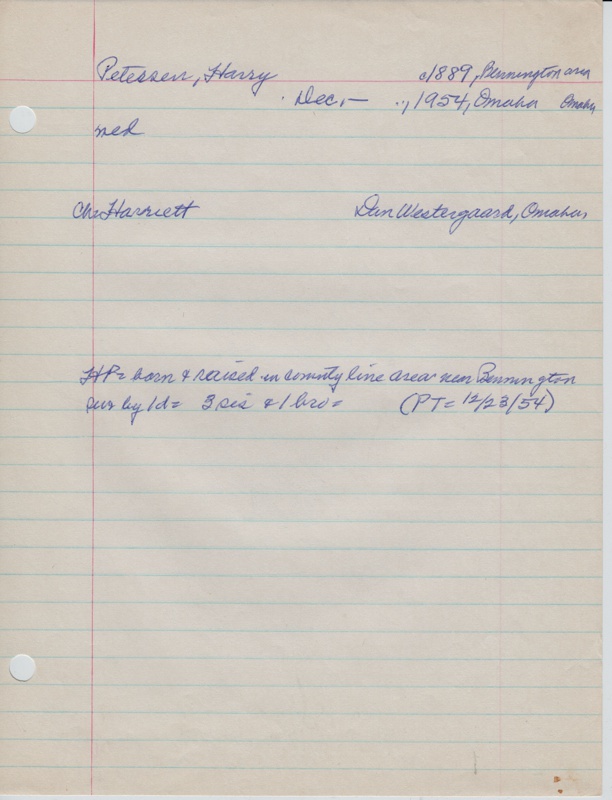 Petersen, Harry c1889, Bennington area
Dec, — , 1954, Omaha Omaha
med
Ch= Harriett Dan Westergaard, Omaha
HP= born & raised in county line area near Bennington
sur by 1d= 3 sis & 1 bro= (PT= 12/23/54)